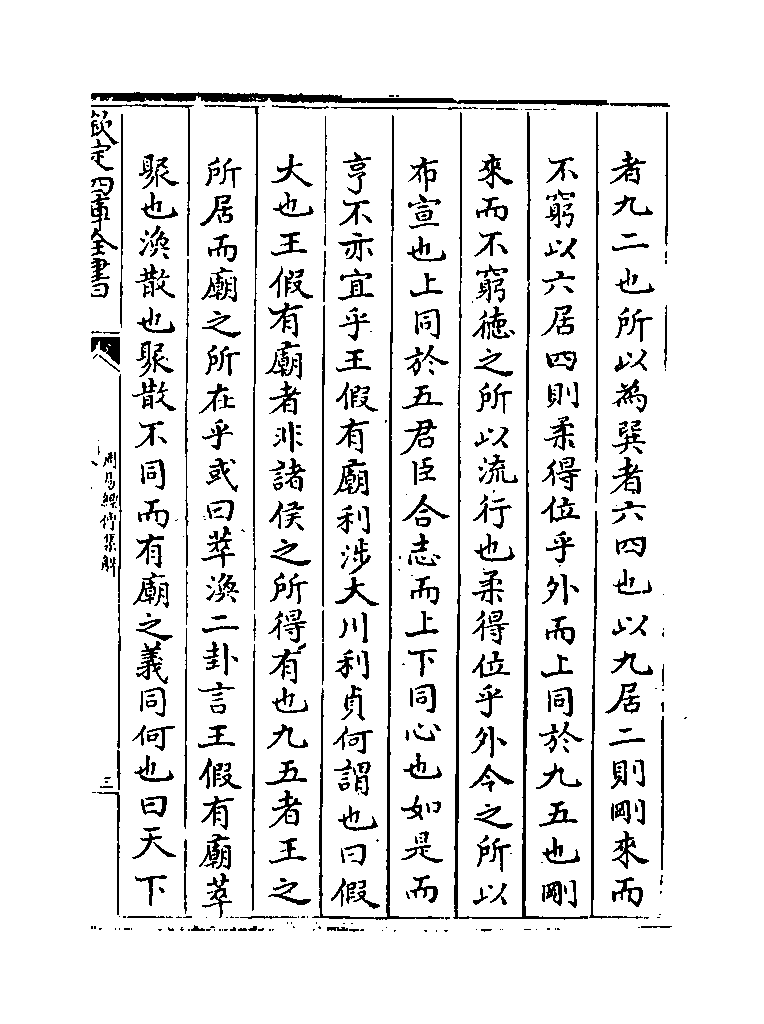 者九二也所以為巽者六四也以九居二則剛來而
不窮以六居四則柔得位乎外而上同於九五也剛
來而不窮德之所以流行也柔得位乎外令之所以
布宣也上同於五君臣合志而上下同心也如是而
亨不亦宜乎王假有廟利涉大川利貞何謂也曰假
大也王假有廟者非諸侯之所得有也九五者王之
所居而廟之所在乎或曰萃渙二卦言王假有廟萃
聚也渙散也聚散不同而有廟之義同何也曰天下
欽定四庫全書
周易經傳集解
三